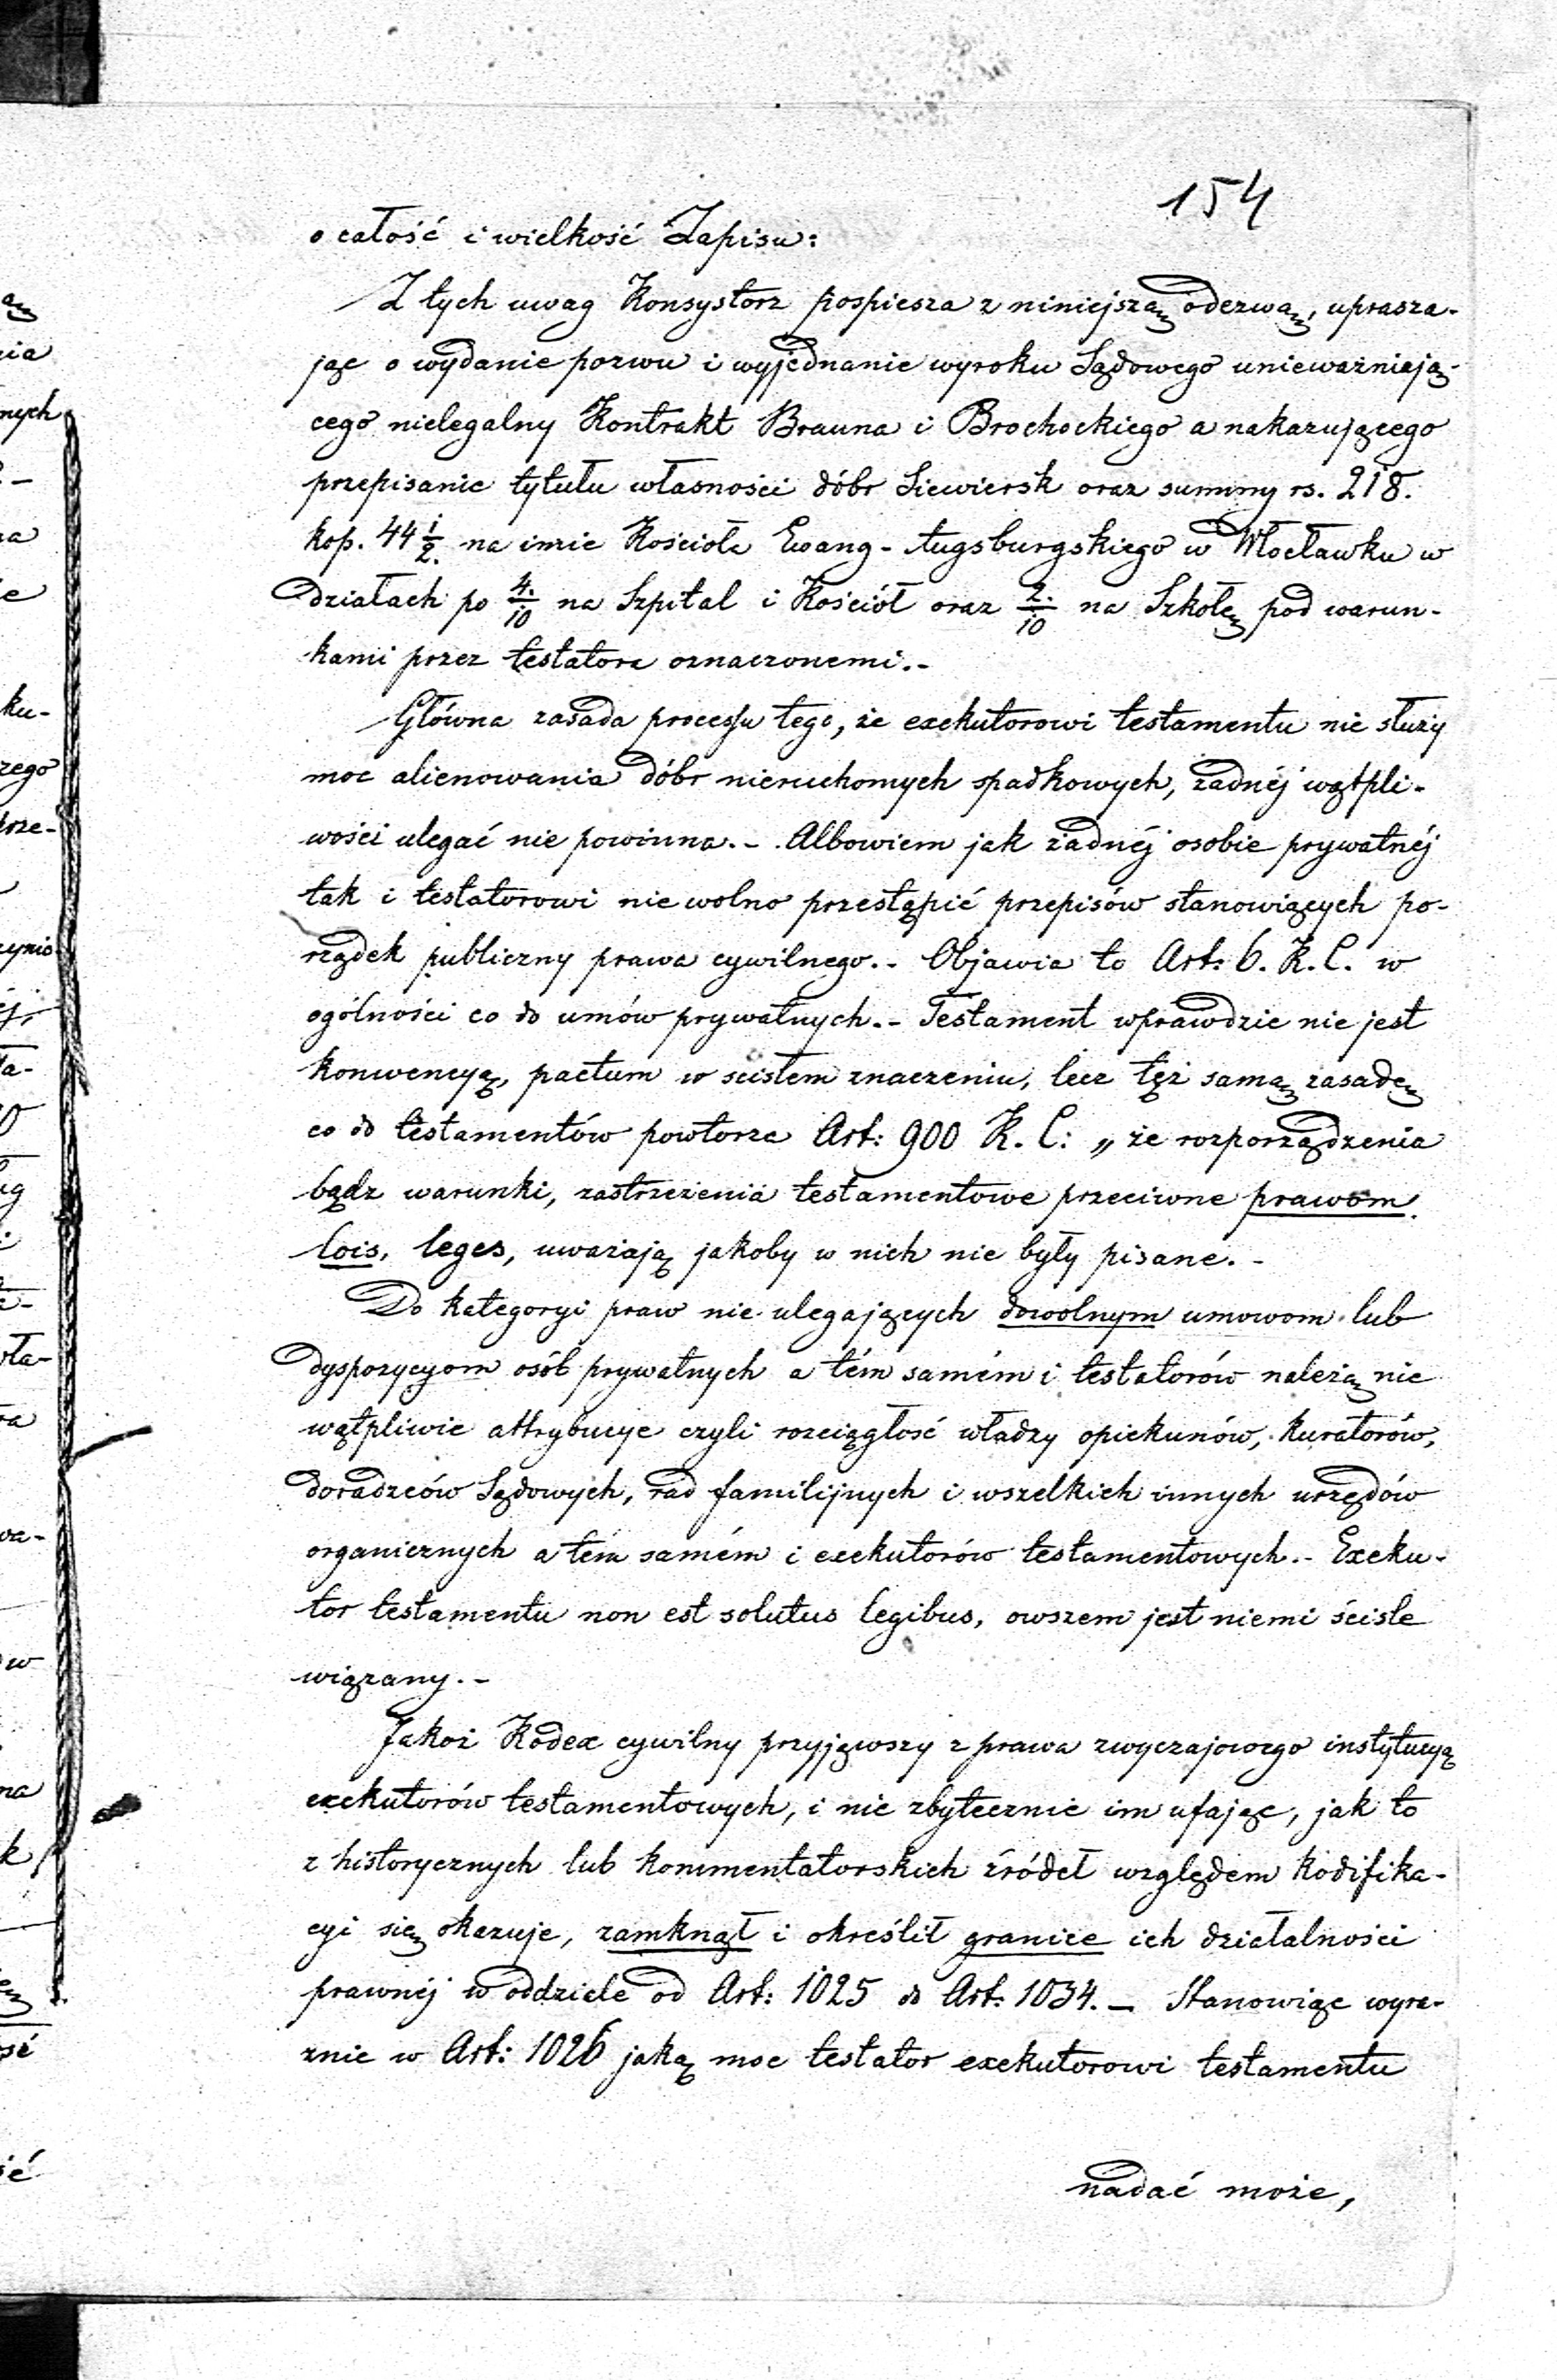 154
o całość i wielkość Zapisu:
Z tych uwag Konsystorz pospiesza z niniejszą odezwą, uprasza-
jąc o wydanie pozwu i wyjednanie wyroku Sądowego unieważniają-
cego nielegalny Kontrakt Brauna i Brochockiego a nakazującego
przepisanie tytułu własności dóbr Siewiersk oraz summy rs. 218.
kop. 44 1/2. na imie Kościoła Ewang-Augsburgskiego w Włocławku w
działach po 4./10 na Szpital i Kościół oraz 2./10 na Szkołę pod warun-
kami przez testatora oznaczonemi.-
Główna zasada processu tego, że exekutorowi testamentu nie służy
moc alienowania dóbr nieruchomych spadkowych, żadnéj wątpli-
wości ulegać nie powinna.- Albowiem jak żadnéj osobie prywatnéj
tak i testatorowi nie wolno przestąpić przepisów stanowiących po-
rządek publiczny prawa cywilnego.- Objawia to Art: 6. K. C. w
ogólności co do umów prywatnych.- Testament wprawdzie nie jest
konwencyą, pactum w scisłem znaczeniu, lecz tęż samą zasadę
co do testamentów powtorza Art: 900 K. C: „że rozporządzenia
bądz warunki, zastrzeżenia testamentowe przeciwne prawom.
lois, leges, uważają jakoby w nich nie były pisane.-
Do kategoryi praw nie ulegających dowolnym umowom lub
dyspozycyom osób prywatnych a tém samém i testatorów należą nie
wątpliwie attrybucye czyli rozciągłość władzy opiekunów, kuratorów,
doradzców Sądowych, rad familijnych i wszelkich innych urzędów
organicznych a tém samém i exekutorów testamentowych.- Exeku-
tor testamentu non est solutus legibus, owszem jest niemi ściśle
wiązany.-
Jakoż Kodex cywilny przyjąwszy z prawa zwyczajowego instytucyą
exekutorów testamentowych, i nie zbytecznie im ufając, jak to
z historycznych lub kommentatorskich źródeł względem kodifika-
cyi się okazuje, zamknął i określił granice ich działalności
prawnéj w oddziele od Art: 1025 do Art: 1034.- Stanowiąc wyra-
znie w Art: 1026 jaką moc testator exekutorowi testamentu
nadać może,